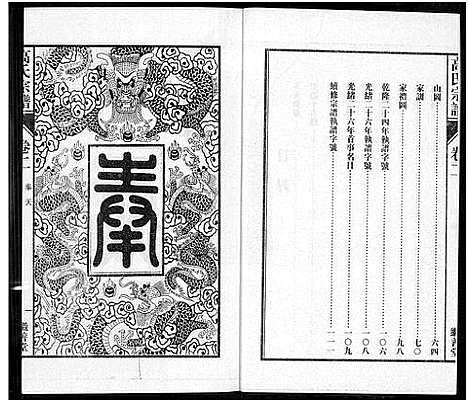 高氏宗譜
卷十一
山圖 六四
家訓 七〇
家禮圖 九八
乾隆二十四年執譜字號 一〇六
光緒二十六年執譜字號 一〇八
光緒二十六年首事名目 一〇九
續修宗譜執譜字號 一一一
高氏宗譜
奉天